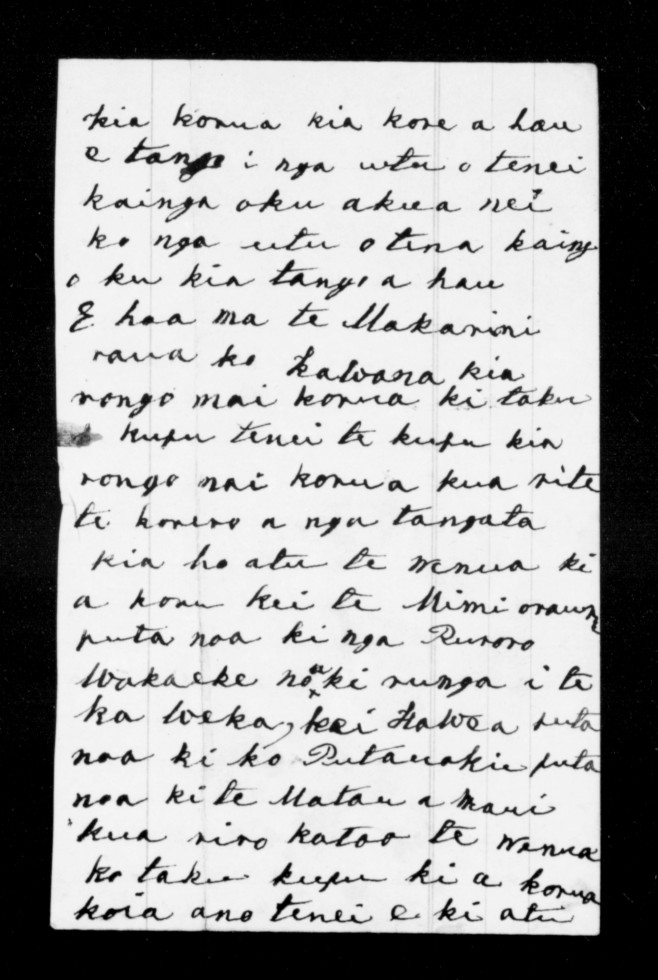 kia korua kia kore a hau
e tango i nga utu o tenei
kainga oku akua nei
ko nga utu o tena kaing
o ku kia tango a hau
E hoa ma te Makarini
raua ko Kawana kia
rongo mai korua ki taku
kupu tenei te kupu kia
rongo mai korua kua rite
te korero a nga tangata
kia ho atu te wenua ki
a koru kei te Mimi
puta noa ki nga Ruroro
Wakaeke noa ki runga i te
ka Weka, kei puta
noa ki ko Putauakii puta
noa ki te Matau a Maui
kua riro katoo te wenua
ko taku kupu ki a korua
koia ano tenei e ki atu